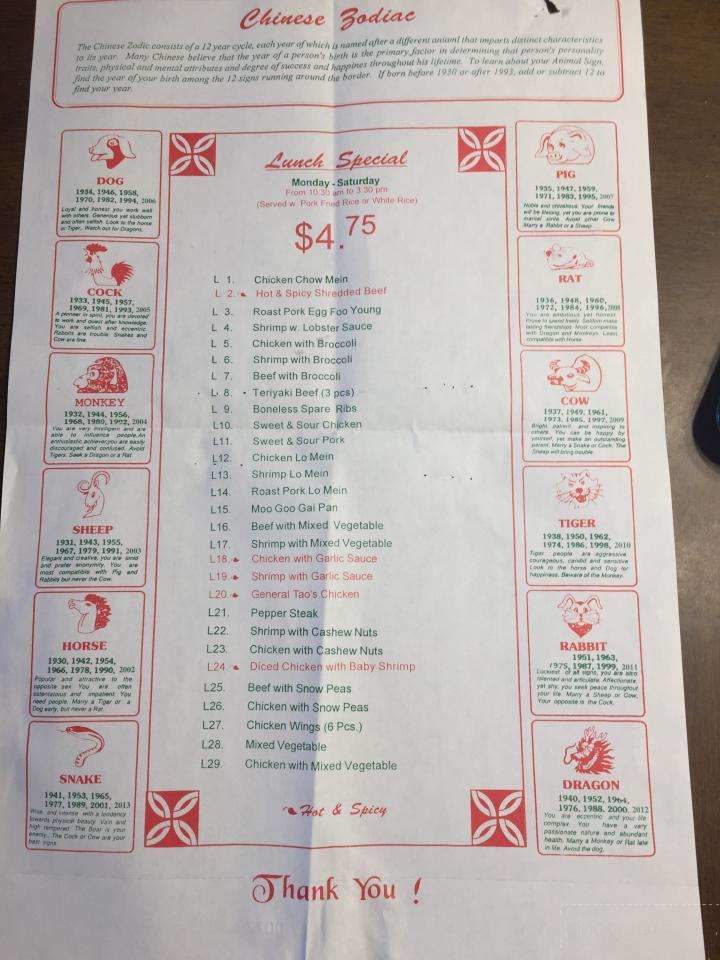 Chinese Zodiac
The Chinese Zodic consists of a 12 year cycle, each year of which is named after a different anioml that imparts distinct characteristics
to its year. Many Chinese believe that the year of a person's birth is the primary factor in determining that person's personality
traits, physical and mental attributes and degree of success and happines throughout his lifetime. To learn about your Animal Sign,
find the year of your birth among the 12 signs running around the border. If born before 1930 or after 1993, add or subtract 12 to
find your year.
DOG
1934, 1946, 1958,
1970, 1982, 1994, 2006
Loyal and honest you work well
with others. Generous yet stubborn
and often selfish. Look to the horse
or Tiger. Watch out for Dragons.
COCK
1933, 1945, 1957,
1969, 1981, 1993, 2005
A pioneer in spirit, you are devoted
to work and quest after knowledge.
You are selfish and eccentric.
Rabbits are trouble. Snakes and
Cow are fine.
MONKEY
1932, 1944, 1956,
1968, 1980, 1992, 2004
You are very intelligent and are
able to influence people.An
enthusiastic achiever,you are easily
discouraged and confused. Avoid
Tigers. Seek a Dragon or a Rat.
SHEEP
1931, 1943, 1955,
1967, 1979, 1991, 2003
Elegant and creative, you are timid
and prefer anonymity. You are
most compatible with Pig and
Rabbits but never the Cow.
HORSE
1930, 1942, 1954,
1966, 1978, 1990, 2002
Popular and attractive to the
opposite sex. You are often
ostentatious and impatient. You
need people. Marry a Tiger or a
Dog early, but never a Rat.
SNAKE
1941, 1953, 1965,
1977, 1989, 2001, 2013
Wise, and intense with a tendency
towards physical beauty. Vain and
high tempered. The Boar is your
enemy. The Cock or Cow are your
best signs.
Lunch Special
Monday - Saturday
From 10:30 am to 3:30 pm
(Served w. Pork Fried Rice or White Rice)
$4.75
L 1. Chicken Chow Mein
L 2. Hot & Spicy Shredded Beef
L 3. Roast Pork Egg Foo Young
L 4. Shrimp w. Lobster Sauce
L 5. Chicken with Broccoli
L 6. Shrimp with Broccoli
L 7. Beef with Broccoli
L. 8. Teriyaki Beef (3 pcs)
L 9. Boneless Spare Ribs
L10. Sweet & Sour Chicken
L11. Sweet & Sour Pork
L12. Chicken Lo Mein
L13. Shrimp Lo Mein
L14. Roast Pork Lo Mein
L15. Moo Goo Gai Pan
L16. Beef with Mixed Vegetable
L17. Shrimp with Mixed Vegetable
L18. Chicken with Garlic Sauce
L19. Shrimp with Garlic Sauce
L20. General Tao's Chicken
L21. Pepper Steak
L22. Shrimp with Cashew Nuts
L23. Chicken with Cashew Nuts
L24 Diced Chicken with Baby Shrimp
L25. Beef with Snow Peas
L26. Chicken with Snow Peas
L27. Chicken Wings (6 Pcs.)
L28. Mixed Vegetable
L29. Chicken with Mixed Vegetable
Hot & Spicy
PIG
1935, 1947, 1959,
1971, 1983, 1995, 2007
Noble and chivalrous. Your friends
will be lifelong, yet you are prone to
marital strife. Avoid other Cow.
Marry a Rabbit or a Sheep.
RAT
1936, 1948, 1960,
1972, 1984, 1996, 2008
You are ambitious yet honest.
Prone to spend freely. Seldom make
lasting friendships. Most compatible
with Dragon and Monkeys. Least
compatible with Horse.
COW
1937, 1949, 1961,
1973, 1985, 1997, 2009
Bright, patient and inspiring to
others. You can be happy by
yourself, yet make an outstanding
parent. Marry a Snake or Cock. The
Sheep will bring trouble.
TIGER
1938, 1950, 1962,
1974, 1986, 1998, 2010
Tiger people are aggressive,
courageous, candid and sensitive.
Look to the horse and Dog for
happiness. Beware of the Monkey.
RABBIT
1951, 1963,
1975, 1987, 1999, 2011
Luckiest of all signs, you are also
talented and articulate. Affectionate,
yet shy, you seek peace throughout
your life. Marry a Sheep or Cow,
Your opposite is the Cock.
DRAGON
1940, 1952, 1964,
1976, 1988, 2000, 2012
You are eccentric and your life
complex. You have a very
passionate nature and abundant
health. Marry a Monkey or Rat late
in life. Avoid the dog.
Thank You !